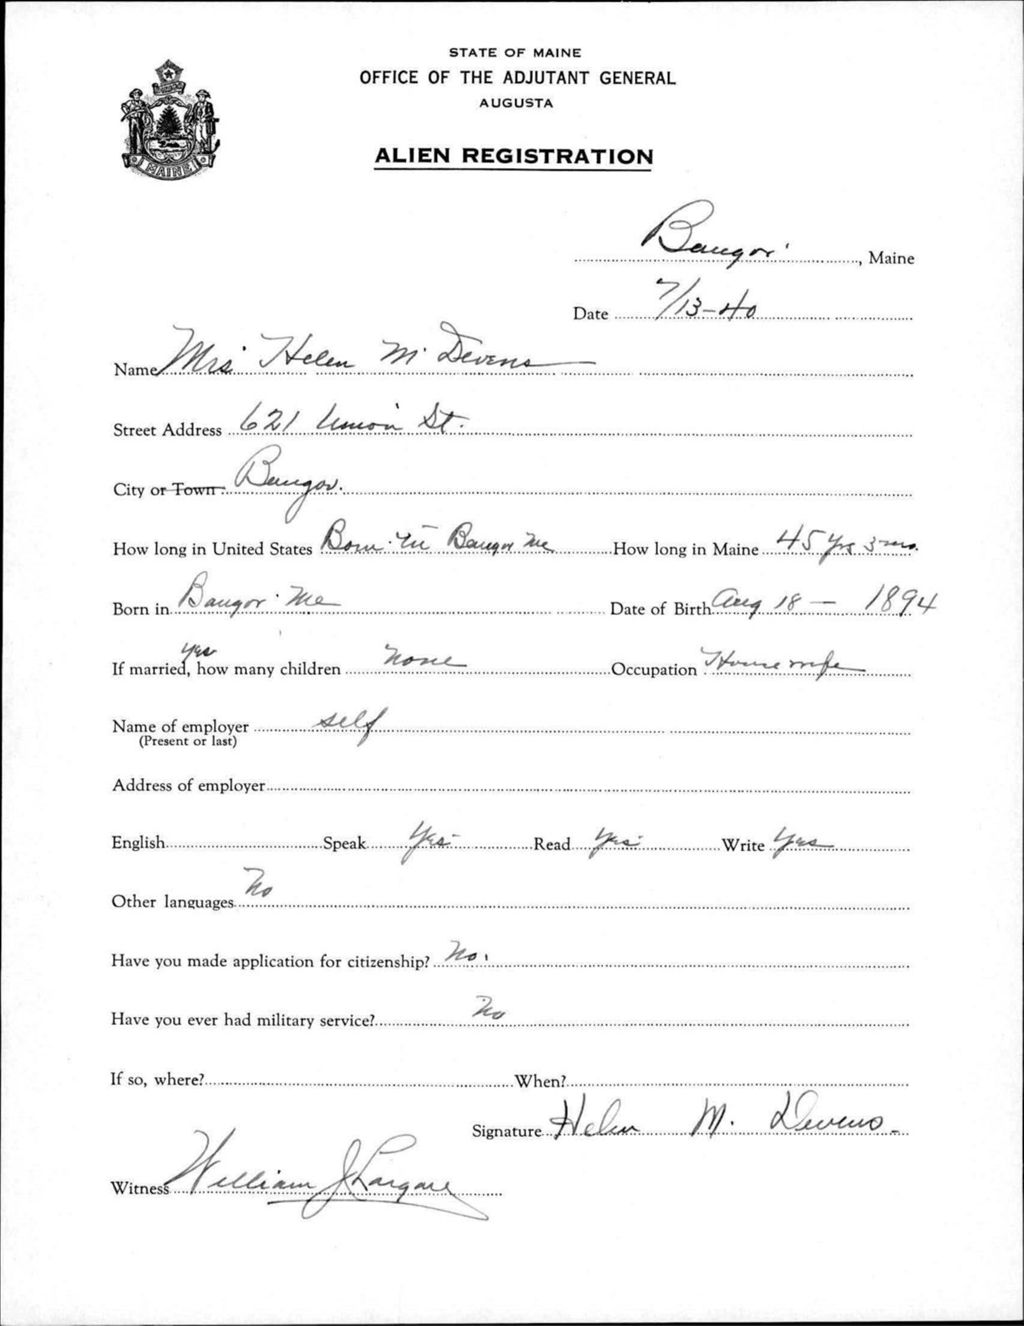 STATE OF MAINE
OFFICE OF THE ADJUTANT GENERAL
AUGUSTA
ALIEN REGISTRATION
MAINE
Bangor, Maine
Date 7/13-40
Name Mrs Helen M. Devens
Street Address 621 Union St.
City or Town Bangor.
How long in United States Born in Bangor Me How long in Maine 45 yrs 3 mo.
Born in Bangor Me Date of Birth Aug 18 - 1894
yes
If married, how many children none Occupation Housewife
Name of employer self
(Present or last)
Address of employer
English Speak Yes Read Yes Write Yes
Other languages No
Have you made application for citizenship? No.
Have you ever had military service? No
If so, where? When?
Signature Helen M. Devens
Witness William J